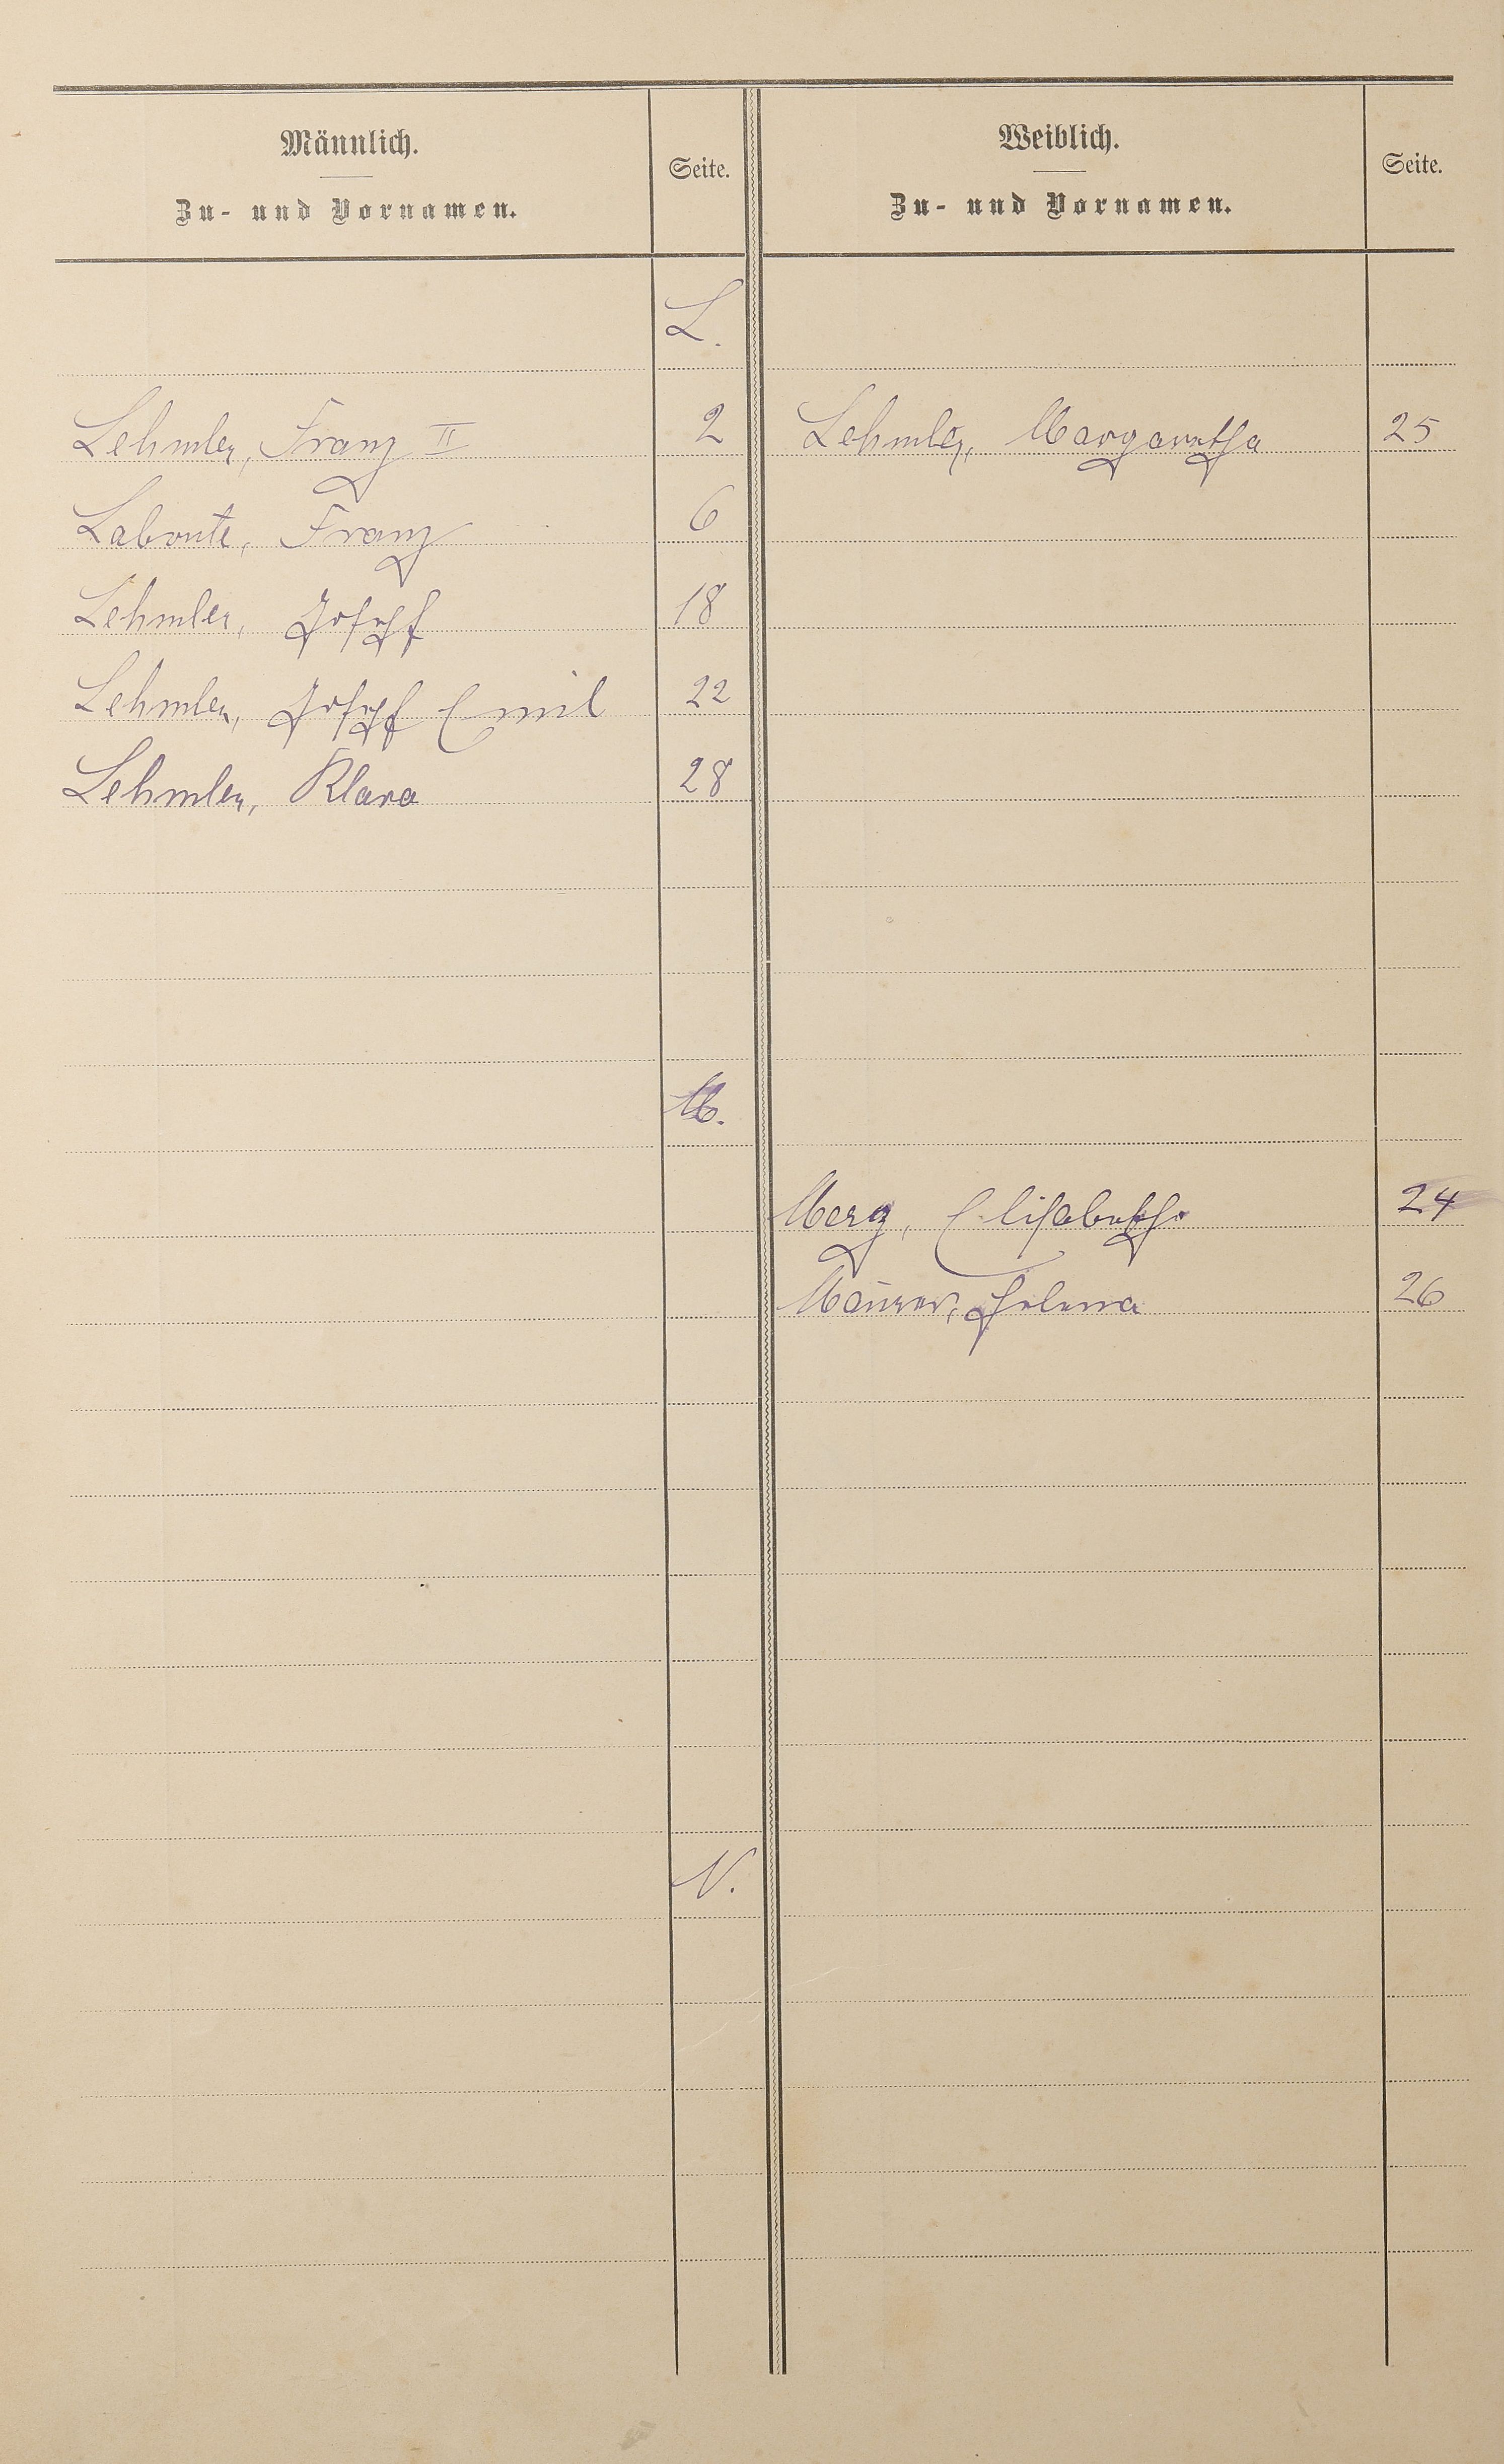 Männlich.
Zu- und Vornamen.
Seite.
Weiblich.
Zu- und Vornamen.
Seite.
L.
Lehmler, Franz II 2 Lehmler, Margaretha 25
Labonte, Franz 6
Lehmler, Joseph 18
Lehmler, Joseph Emil 22
Lehmler, Klara 28
M.
Merg, Elisabetha 24
Maurer, Helena 26
N.